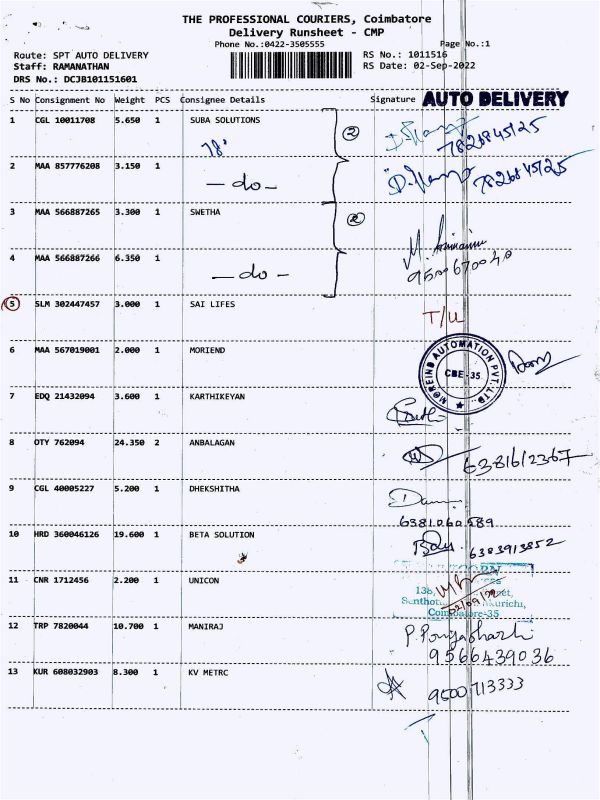 THE PROFESSIONAL COURIERS, Coimbatore
Delivery Runsheet - CMP
Phone No.:0422-3505555 Page No.:1
Route: SPT AUTO DELIVERY RS No.: 1011516
Staff: RAMANATHAN RS Date: 02-Sep-2022
DRS No.: DCJB101151601
S No Consignment No Weight PCS Consignee Details Signature AUTO DELIVERY
1 CGL 10011708 5.650 1 SUBA SOLUTIONS 2
7826845125
2 MAA 857776208 3.150 1
-do- 7826845125
3 MAA 566887265 3.300 1 SWETHA 2
4 MAA 566887266 6.350 1
-do- 9500670040
5 SLM 302447457 3.000 1 SAI LIFES
T/U
6 MAA 567019001 2.000 1 MORIEND
MOREIND AUTOMATION PVT. LTD.
CBE-35
7 EDQ 21432094 3.600 1 KARTHIKEYAN
8 OTY 762094 24.350 2 ANBALAGAN
6381612367
9 CGL 40005227 5.200 1 DHEKSHITHA
6381060589
10 HRD 360046126 19.600 1 BETA SOLUTION
6383913852
11 CNR 1712456 2.200 1 UNICON
02/09/22
Coimbatore-35
12 TRP 7820044 10.700 1 MANIRAJ
9566439036
13 KUR 608032903 8.300 1 KV METRC
9500713333